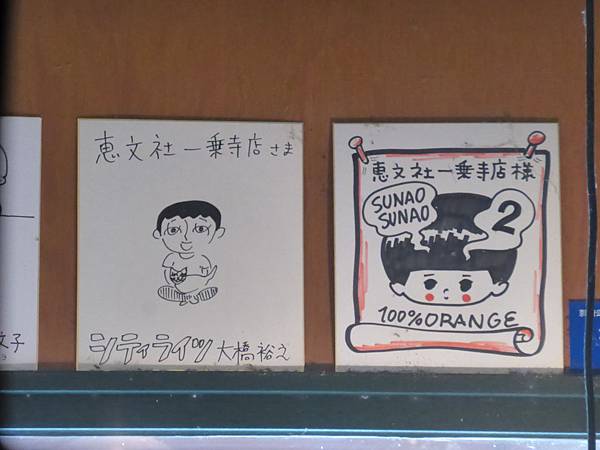 恵文社一乗寺店さま
シティライツ 大橋裕之
恵文社一乗寺店様
SUNAO
SUNAO
2
100%ORANGE
文子